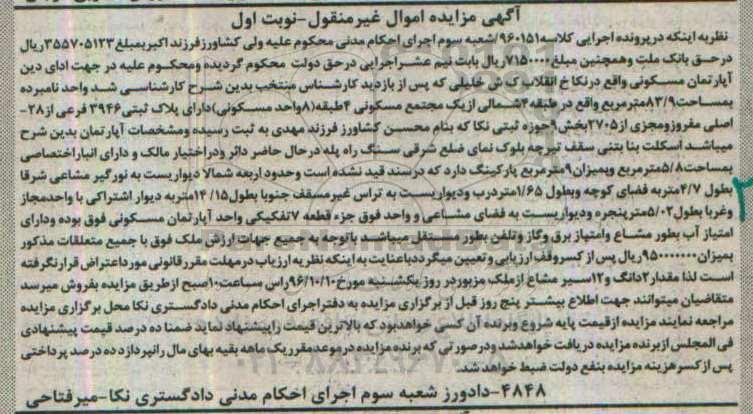 آگهی مزایده اموال غیرمنقول-نوبت اول
نظربه اینکه درپرونده اجرایی کلاسه۹۶۰۱۵۱/شعبه سوم اجرای احکام مدنی محکوم علیه ولی کشاورزفرزند اکبربمبلغ۳۵۵۷۰۵۱۲۳ریال
درحق بانک ملت وهمچنین مبلغ۷۱۵۰۰۰۰ریال بابت نیم عشراجرایی درحق دولت محکوم گردیده ومحکوم علیه در جهت ادای دین
آپارتمان مسکونی واقع درنکا خ انقلاب ک ش خلیلی که پس از بازدید کارشناس منتخب بدین شرح کارشناسی شد واحد نامبرده
بمساحت۸۳/۹مترمربع واقع در طبقه۴شمالی ازیک مجتمع مسکونی ۴طبقه(۸واحد مسکونی)دارای پلاک ثبتی۳۹۴۶ فرعی از۲۸-
اصلی مفروزومجزی از۲۷۰۵بخش۹حوزه ثبتی نکا که بنام محسن کشاورز فرزند مهدی به ثبت رسیده ومشخصات آپارتمان بدین شرح
میباشد اسکلت بنا بتنی سقف تیرچه بلوک نمای ضلع شرقی سنگ راه پله درحال حاضر دائر ودراختیار مالک و دارای انباراختصاصی
بمساحت۵/۸مترمربع وبمیزان۹مترمربع پارکینگ دارد که درسند قید نشده است وحدود اربعه شمالا دیواریست به نورگیر مشاعی شرقا
بطول ۴/۷متربه فضای کوچه وبطول ۱/۶۵متردرب ودیواریست به تراس غیرمسقف جنوبا بطول۱۴/۱۵متربه دیوار اشتراکی با واحدمجاز
وغربا بطول۵/۰۲مترپنجره ودیواریست به فضای مشاعی و واحد فوق جزء قطعه ۷تفکیکی واحد آپارتمان مسکونی فوق بوده ودارای
امتیاز آب بطور مشاع وامتیاز برق وگاز وتلفن بطور مستقل میباشد باتوجه به جمیع جهات ارزش ملک فوق با جمیع متعلقات مذکور
بمیزان۹۵۰۰۰۰۰۰۰ریال پس از کسروقف ارزیابی وتعیین میگرددباعنایت به اینکه نظریه ارزیاب درمهلت مقررقانونی مورداعتراض قرارنگرفته
است لذا مقدار۲دانگ و۱۲سیر مشاع ازملک مزبوردر روز یکشنبه مورخ۹۶/۱۰/۱۰راس ساعت۱۰صبح ازطریق مزایده بفروش میرسد
متقاضیان میتوانند جهت اطلاع بیشتر پنج روز قبل از برگزاری مزایده به دفتراجرای احکام مدنی دادگستری نکا محل برگزاری مزایده
مراجعه نمایند مزایده ازقیمت پایه شروع وبرنده آن کسی خواهدبود که بالاترین قیمت راپیشنهاد نماید ضمنا ده درصد قیمت پیشنهادی
فی المجلس ازبرنده مزایده دریافت خواهدشد ودرصورتی که برنده مزایده درموعدمقرریک ماهه بقیه بهای مال رانپردازد ده درصد پرداختی
پس ازکسرهزینه مزایده بنفع دولت ضبط خواهد شد
۴۸۴۸-دادورز شعبه سوم اجرای احکام مدنی دادگستری نکا-میرفتاحی